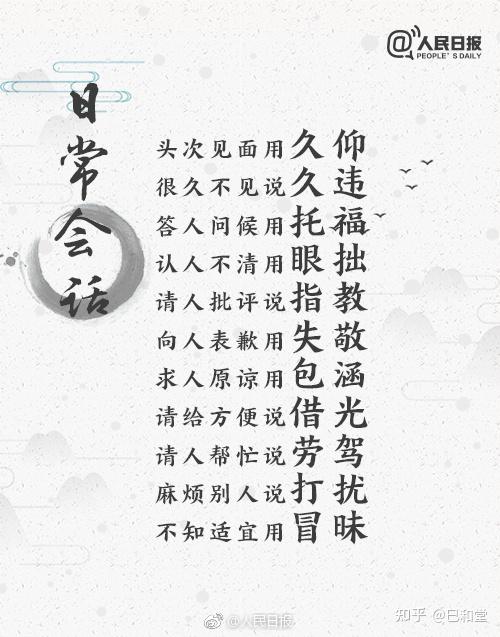 @人民日报
PEOPLE'S DAILY
日常会话
头次见面用久仰
很久不见说久违
答人问候用托福
认人不清用眼拙
请人批评说指教
向人表歉用失敬
求人原谅用包涵
请给方便说借光
请人帮忙说劳驾
麻烦别人说打扰
不知适宜用冒昧
@人民日报
知乎 @巳和堂